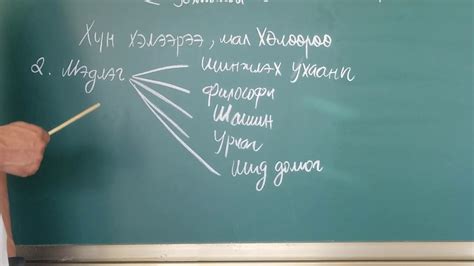 Хүн хэлээрээ, мал хөлөөрөө
2. Мэдлэг
Шинжлэх ухаан
Философи
Шашин
Урлаг
Шид домог